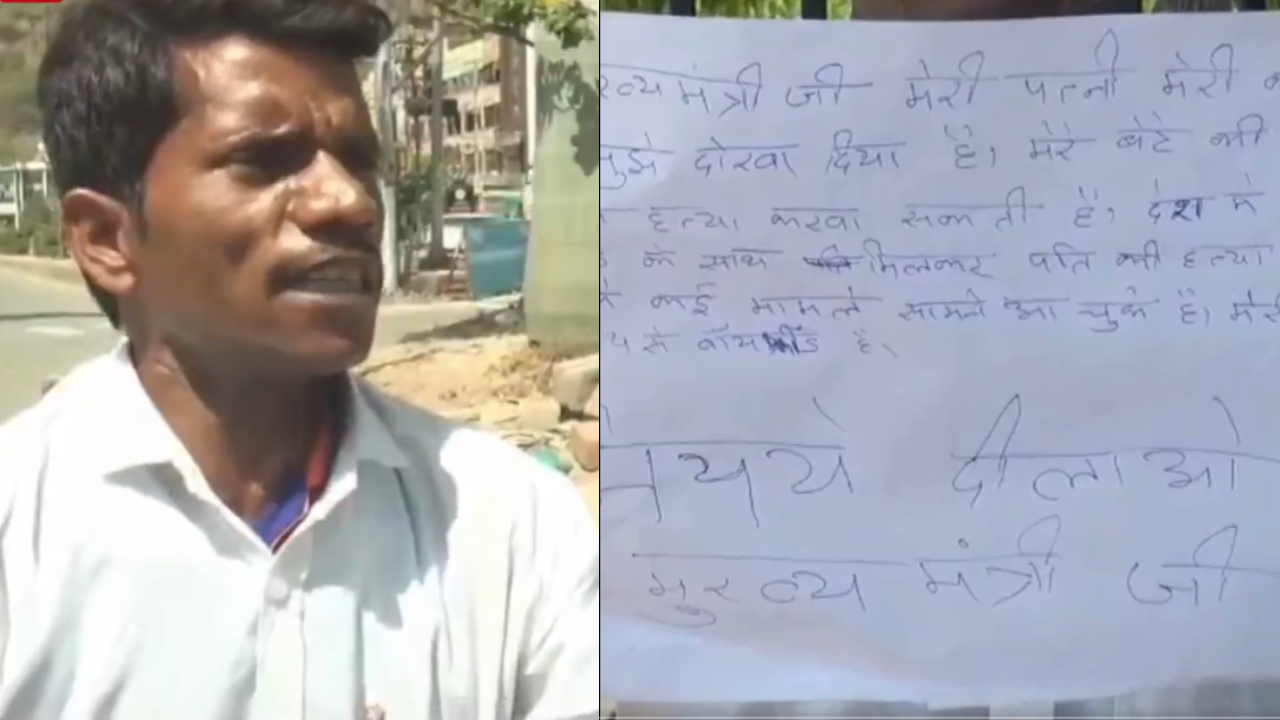 मुख्य मंत्री जी मेरी पत्नी मेरी
मुझे दोखा दिया है। मेरे बेटे की
हत्या करवा सकती है, देश मे
के साथ मिलकर पति की हत्या
कई मामले सामने आ चुके है। मेरी
से बॉयफ्रेंड है,
न्यये दीलाओ
मुख्य मंत्री जी